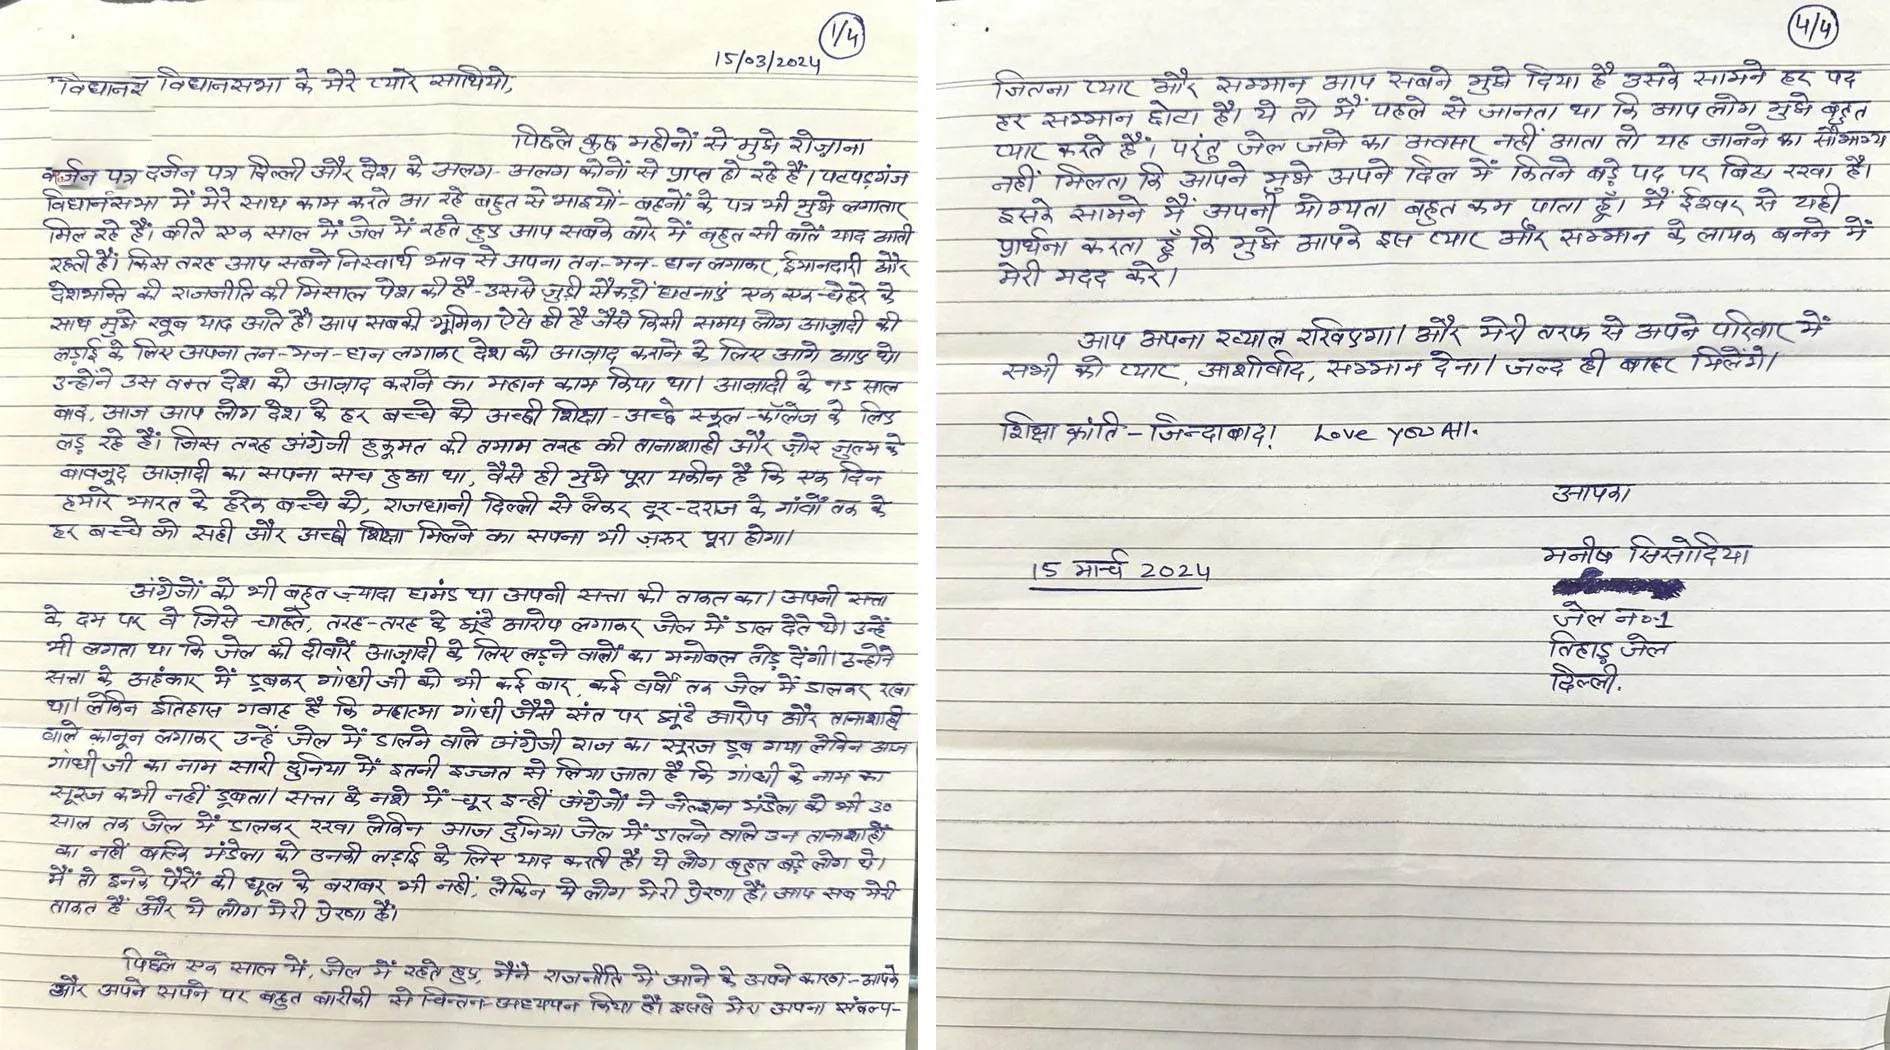 1/4
15/03/2024
विधानस विधानसभा के मेरे प्यारे साथियो,
पिछले कुछ महीनों से मुझे रोज़ाना
दर्जन पत्र दर्जन पत्र दिल्ली और देश के अलग-अलग कोनों से प्राप्त हो रहे हैं। पटपड़गंज
विधानसभा में मेरे साथ काम करते आ रहे बहुत से भाइयों-बहनों के पत्र भी मुझे लगातार
मिल रहे हैं। बीते एक साल में जेल में रहते हुए आप सबके बारे में बहुत सी बातें याद आती
रहती हैं। किस तरह आप सबने निस्वार्थ भाव से अपना तन-मन-धन लगाकर, ईमानदारी और
देशभक्ति की राजनीति की मिसाल पेश की है-उससे जुड़ी सैकड़ों घटनाएं एक एक चेहरे के
साथ मुझे खूब याद आते हैं। आप सबकी भूमिका ऐसे ही है जैसे किसी समय लोग आज़ादी की
लड़ाई के लिए अपना तन-मन-धन लगाकर देश को आज़ाद कराने के लिए आगे आए थे।
उन्होंने उस वक्त देश को आज़ाद कराने का महान काम किया था। आज़ादी के 75 साल
बाद, आज आप लोग देश के हर बच्चे को अच्छी शिक्षा-अच्छे स्कूल-कॉलेज के लिए
लड़ रहे हैं। जिस तरह अंग्रेजी हुकूमत की तमाम तरह की तानाशाही और ज़ोर ज़ुल्म के
बावजूद आज़ादी का सपना सच हुआ था, वैसे ही मुझे पूरा यकीन है कि एक दिन
हमारे भारत के हरेक बच्चे को, राजधानी दिल्ली से लेकर दूर-दराज के गांवों तक के
हर बच्चे को सही और अच्छी शिक्षा मिलने का सपना भी ज़रूर पूरा होगा।
अंग्रेजों को भी बहुत ज़्यादा घमंड था अपनी सत्ता की ताकत का। अपनी सत्ता
के दम पर वे जिसे चाहते, तरह-तरह के झूंठे आरोप लगाकर जेल में डाल देते थे। उन्हें
भी लगता था कि जेल की दीवारें आज़ादी के लिए लड़ने वालों का मनोबल तोड़ देंगी। उन्होंने
सत्ता के अहंकार में डूबकर गांधी जी को भी कई बार, कई वर्षों तक जेल में डालकर रखा
था। लेकिन इतिहास गवाह है कि महात्मा गांधी जैसे संत पर झूंठे आरोप और तानाशाही
वाले कानून लगाकर उन्हें जेल में डालने वाले अंग्रेजी राज का सूरज डूब गया लेकिन आज
गांधी जी का नाम सारी दुनिया में इतनी इज्जत से लिया जाता है कि गांधी के नाम का
सूरज कभी नहीं डूबता। सत्ता के नशे में चूर इन्हीं अंग्रेजों ने नेल्शन मंडेला को भी 30
साल तक जेल में डालकर रखा लेकिन आज दुनिया जेल में डालने वाले उन तानाशाहों
का नहीं बल्कि मंडेला को उनकी लड़ाई के लिए याद करती है। ये लोग बहुत बड़े लोग थे।
मैं तो इनके पैरों की धूल के बराबर भी नहीं, लेकिन ये लोग मेरी प्रेरणा हैं। आप सब मेरी
ताकत हैं और ये लोग मेरी प्रेरणा हैं।
पिछले एक साल में, जेल में रहते हुए, मैंने राजनीति में आने के अपने कारण-आपके
और अपने सपने पर बहुत बारीकी से चिन्तन-अध्ययन किया है। इससे मेरा अपना संकल्प-
4/4
जितना प्यार और सम्मान आप सबने मुझे दिया है उसके सामने हर पद
हर सम्मान छोटा है। ये तो मैं पहले से जानता था कि आप लोग मुझे बहुत
प्यार करते हैं। परंतु जेल जाने का अवसर नहीं आता तो यह जानने का सौभाग्य
नहीं मिलता कि आपने मुझे अपने दिल में कितने बड़े पद पर बिठा रखा है।
इसके सामने मैं अपनी योग्यता बहुत कम पाता हूँ। मैं ईश्वर से यही
प्रार्थना करता हूँ कि मुझे आपके इस प्यार और सम्मान के लायक बनने में
मेरी मदद करे।
आप अपना ख्याल रखिएगा। और मेरी तरफ से अपने परिवार में
सभी को प्यार, आशीर्वाद, सम्मान देना। जल्द ही बाहर मिलेंगे।
शिक्षा क्रांति-जिन्दाबाद! Love you All.
आपका
मनीष सिसोदिया
15 मार्च 2024
जेल न०-1
तिहाड़ जेल
दिल्ली.